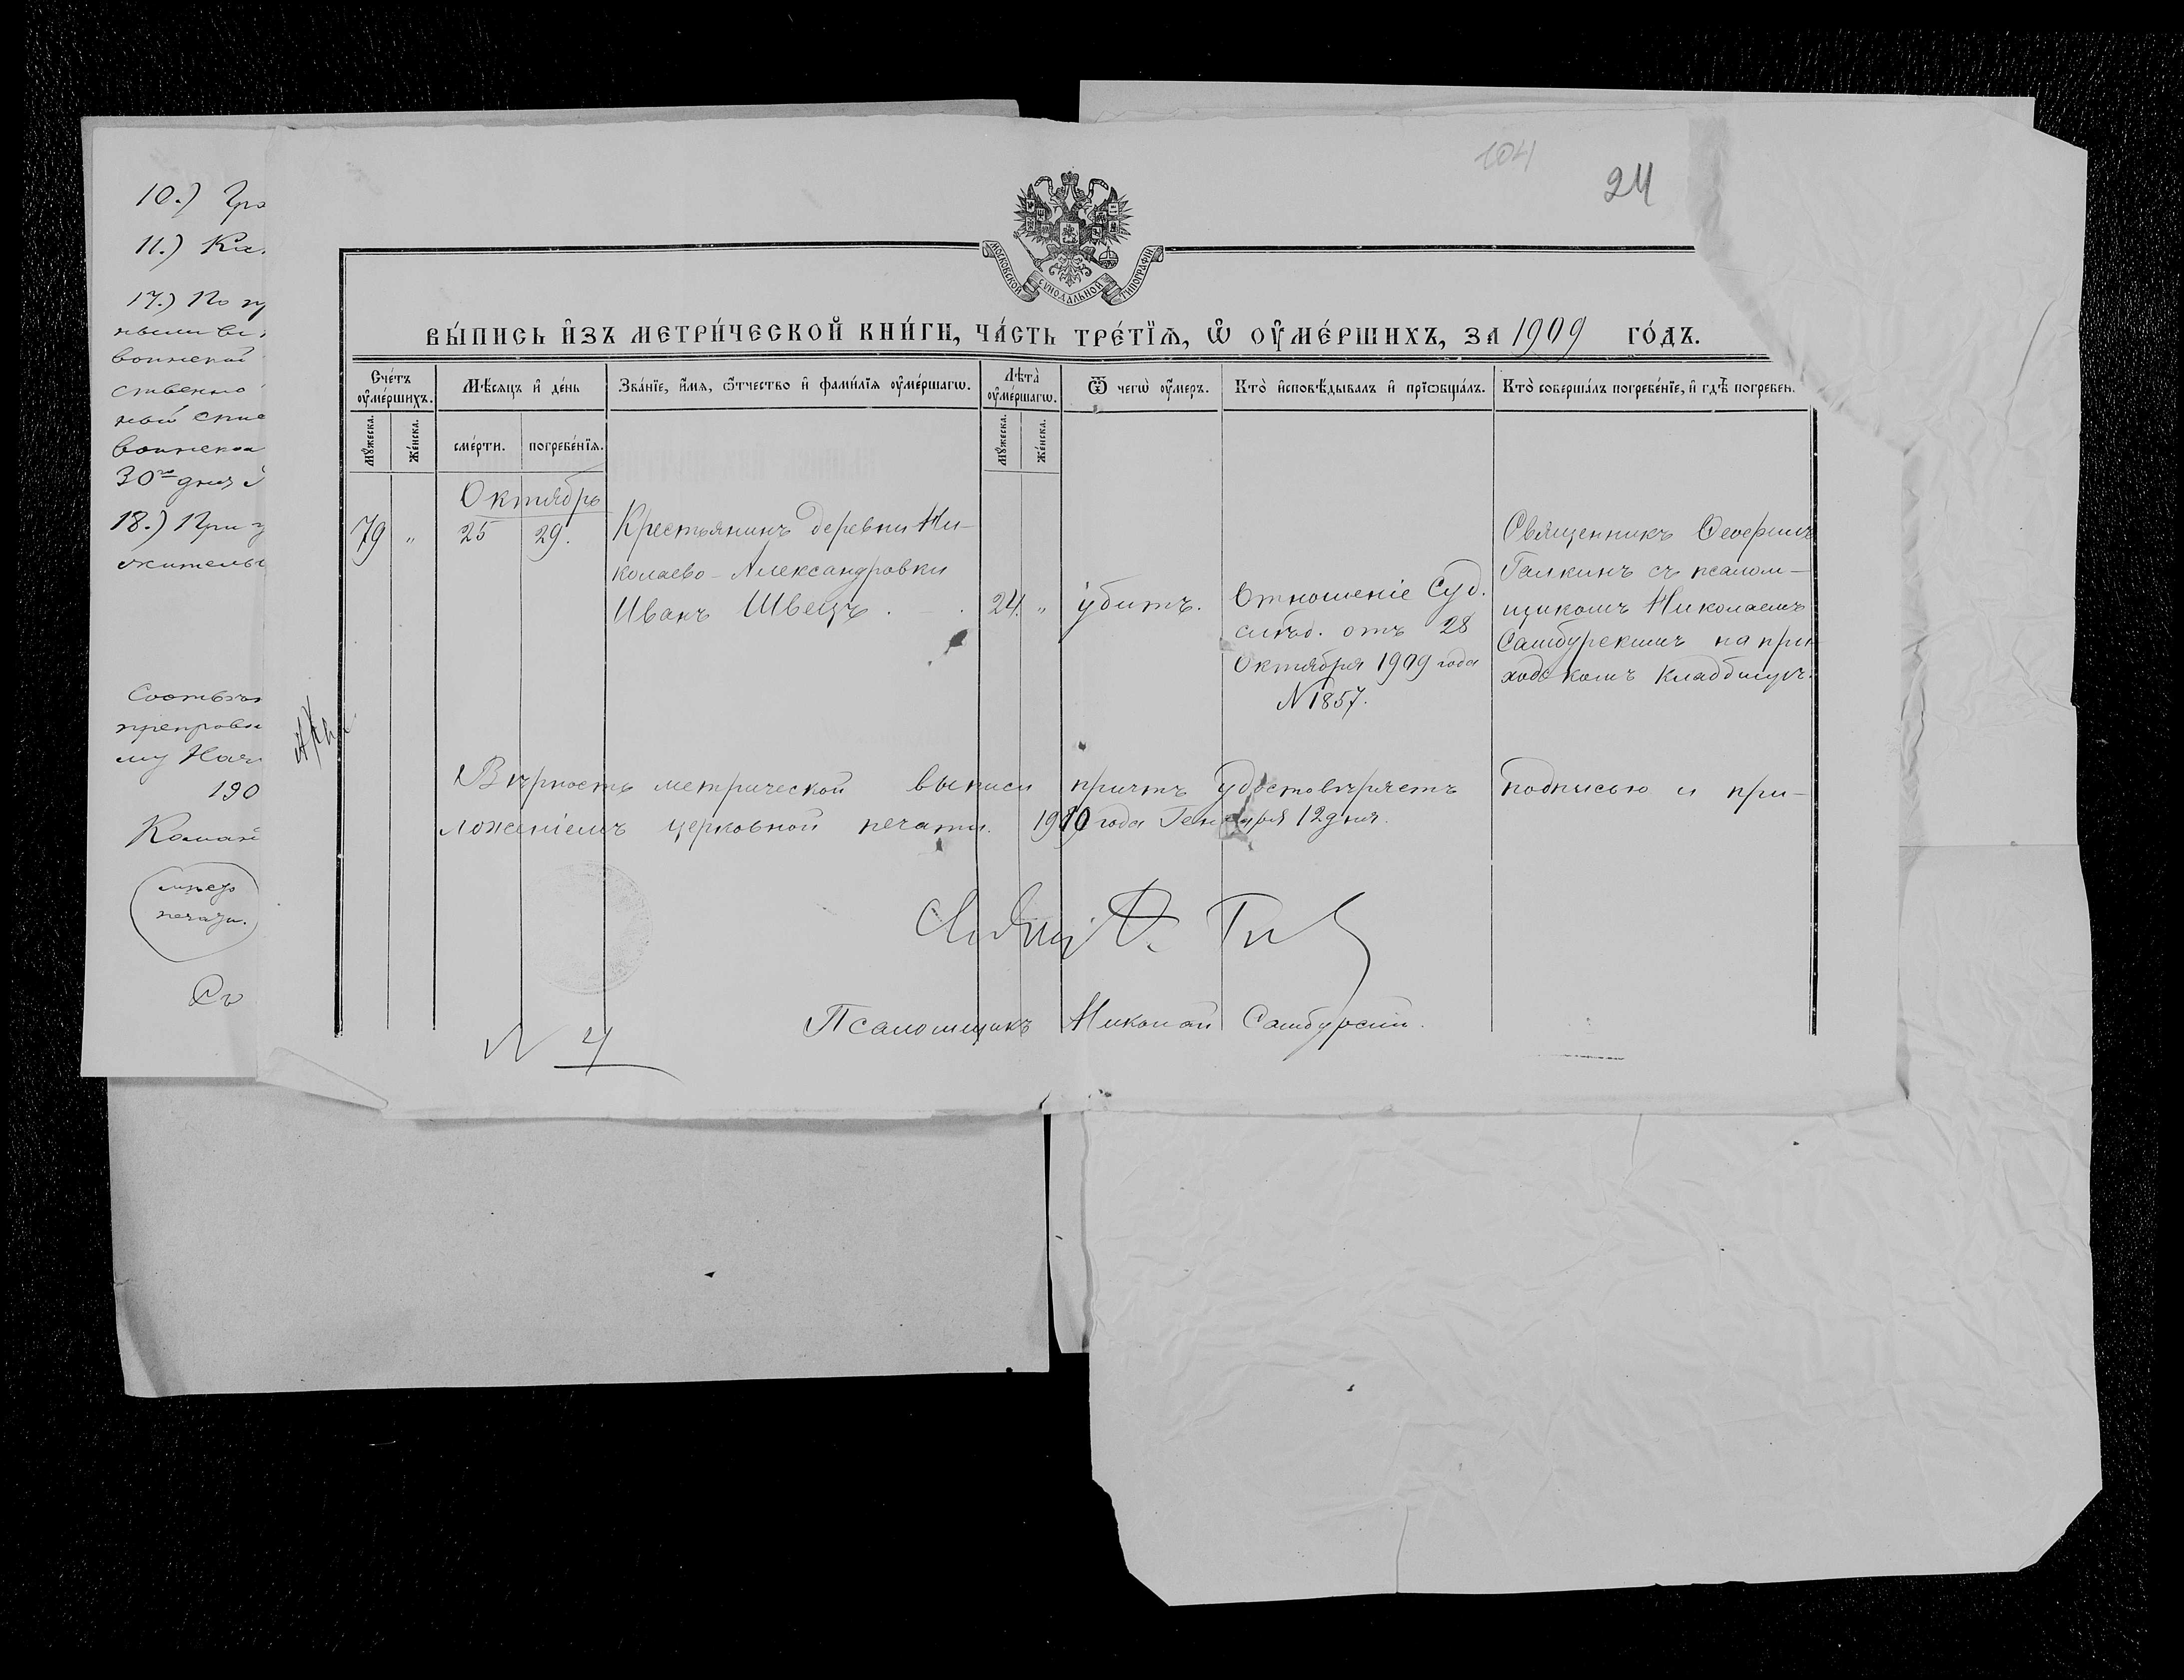 10.) Гра
11.) Ка
17.) По
воинской
ственно
ный спис
воинской
30го дня
18.) При
жительс
Состав
препрово
му Нач
190
Коман
мѣсто
печати.
Св
104
24
МОСКОВСКОЙ СѴНОДАЛЬНОЙ ТИПОГРАФІИ
ВЫ́ПИСЬ И҆ЗЪ МЕТРИ́ЧЕСКОЙ КНИ́ГИ, ЧА́СТЬ ТРЕ́ТЇѦ, Ѡ҆ ОУ҆МЕ́РШИХЪ, ЗА 1909 ГО́ДЪ.
Сче́тъ оу҆ме́ршихъ.
Мꙋ́жеска.
Же́нска.
Мѣ́сѧцъ и҆ де́нь
сме́рти.
погребе́нїѧ.
Зва́нїе, и҆́мѧ, ѻ҆́тчество и҆ фами́лїѧ оу҆ме́ршагѡ.
Лѣ́та оу҆ме́ршагѡ.
Мꙋ́жеска.
Же́нска.
Ѿ чегѡ̀ оу҆́меръ.
Кто̀ и҆сповѣ́дывалъ и҆ прїѡбща́лъ.
Кто̀ соверша́лъ погребе́нїе, и҆ гдѣ̀ погребен.
Октябрь
79 " 25 29.
Крестьянинъ деревни Ни-
колаево-Александровки
Иванъ Швецъ.
24. "
убитъ.
Отношеніе Суд.
слѣд. отъ 28
Октября 1909 года
N 1857.
Священникъ
Галкинъ съ псалом-
щикомъ Николаемъ
Самбурскимъ на при
ходскомъ кладбищѣ.
Вѣрность метрической выписи причтъ удостовѣряетъ подписью и при-
ложеніемъ церковной печати. 1910 года Генваря 12 дня.
Псаломщикъ Николай Самбурскій.
N 4